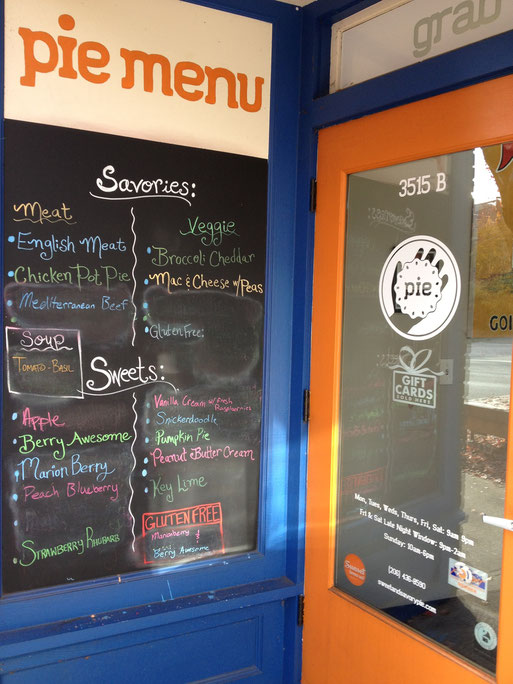 pie menu
Savories:
Meat
English Meat
Chicken Pot Pie
Mediterranean Beef
Veggie
Broccoli Cheddar
Mac & Cheese w/Peas
Gluten Free:
Soup
Tomato-Basil
Sweets:
Apple
Berry Awesome
Marion Berry
Peach Blueberry
Strawberry Rhubarb
Vanilla Cream w/ Fresh
Raspberries
Snickerdoodle
Pumpkin Pie
Peanut Butter Cream
Key Lime
GLUTEN FREE
Marionberry
&
Berry Awesome
grab
3515 B
pie
GIFT
CARDS
SOLD HERE
Mon, Tues, Weds, Thurs, Fri, Sat: 9am-9pm
Fri & Sat Late Night Window: 9pm-2am
Sunday: 10am-6pm
(206) 436-8590
sweetandsavorypie.com